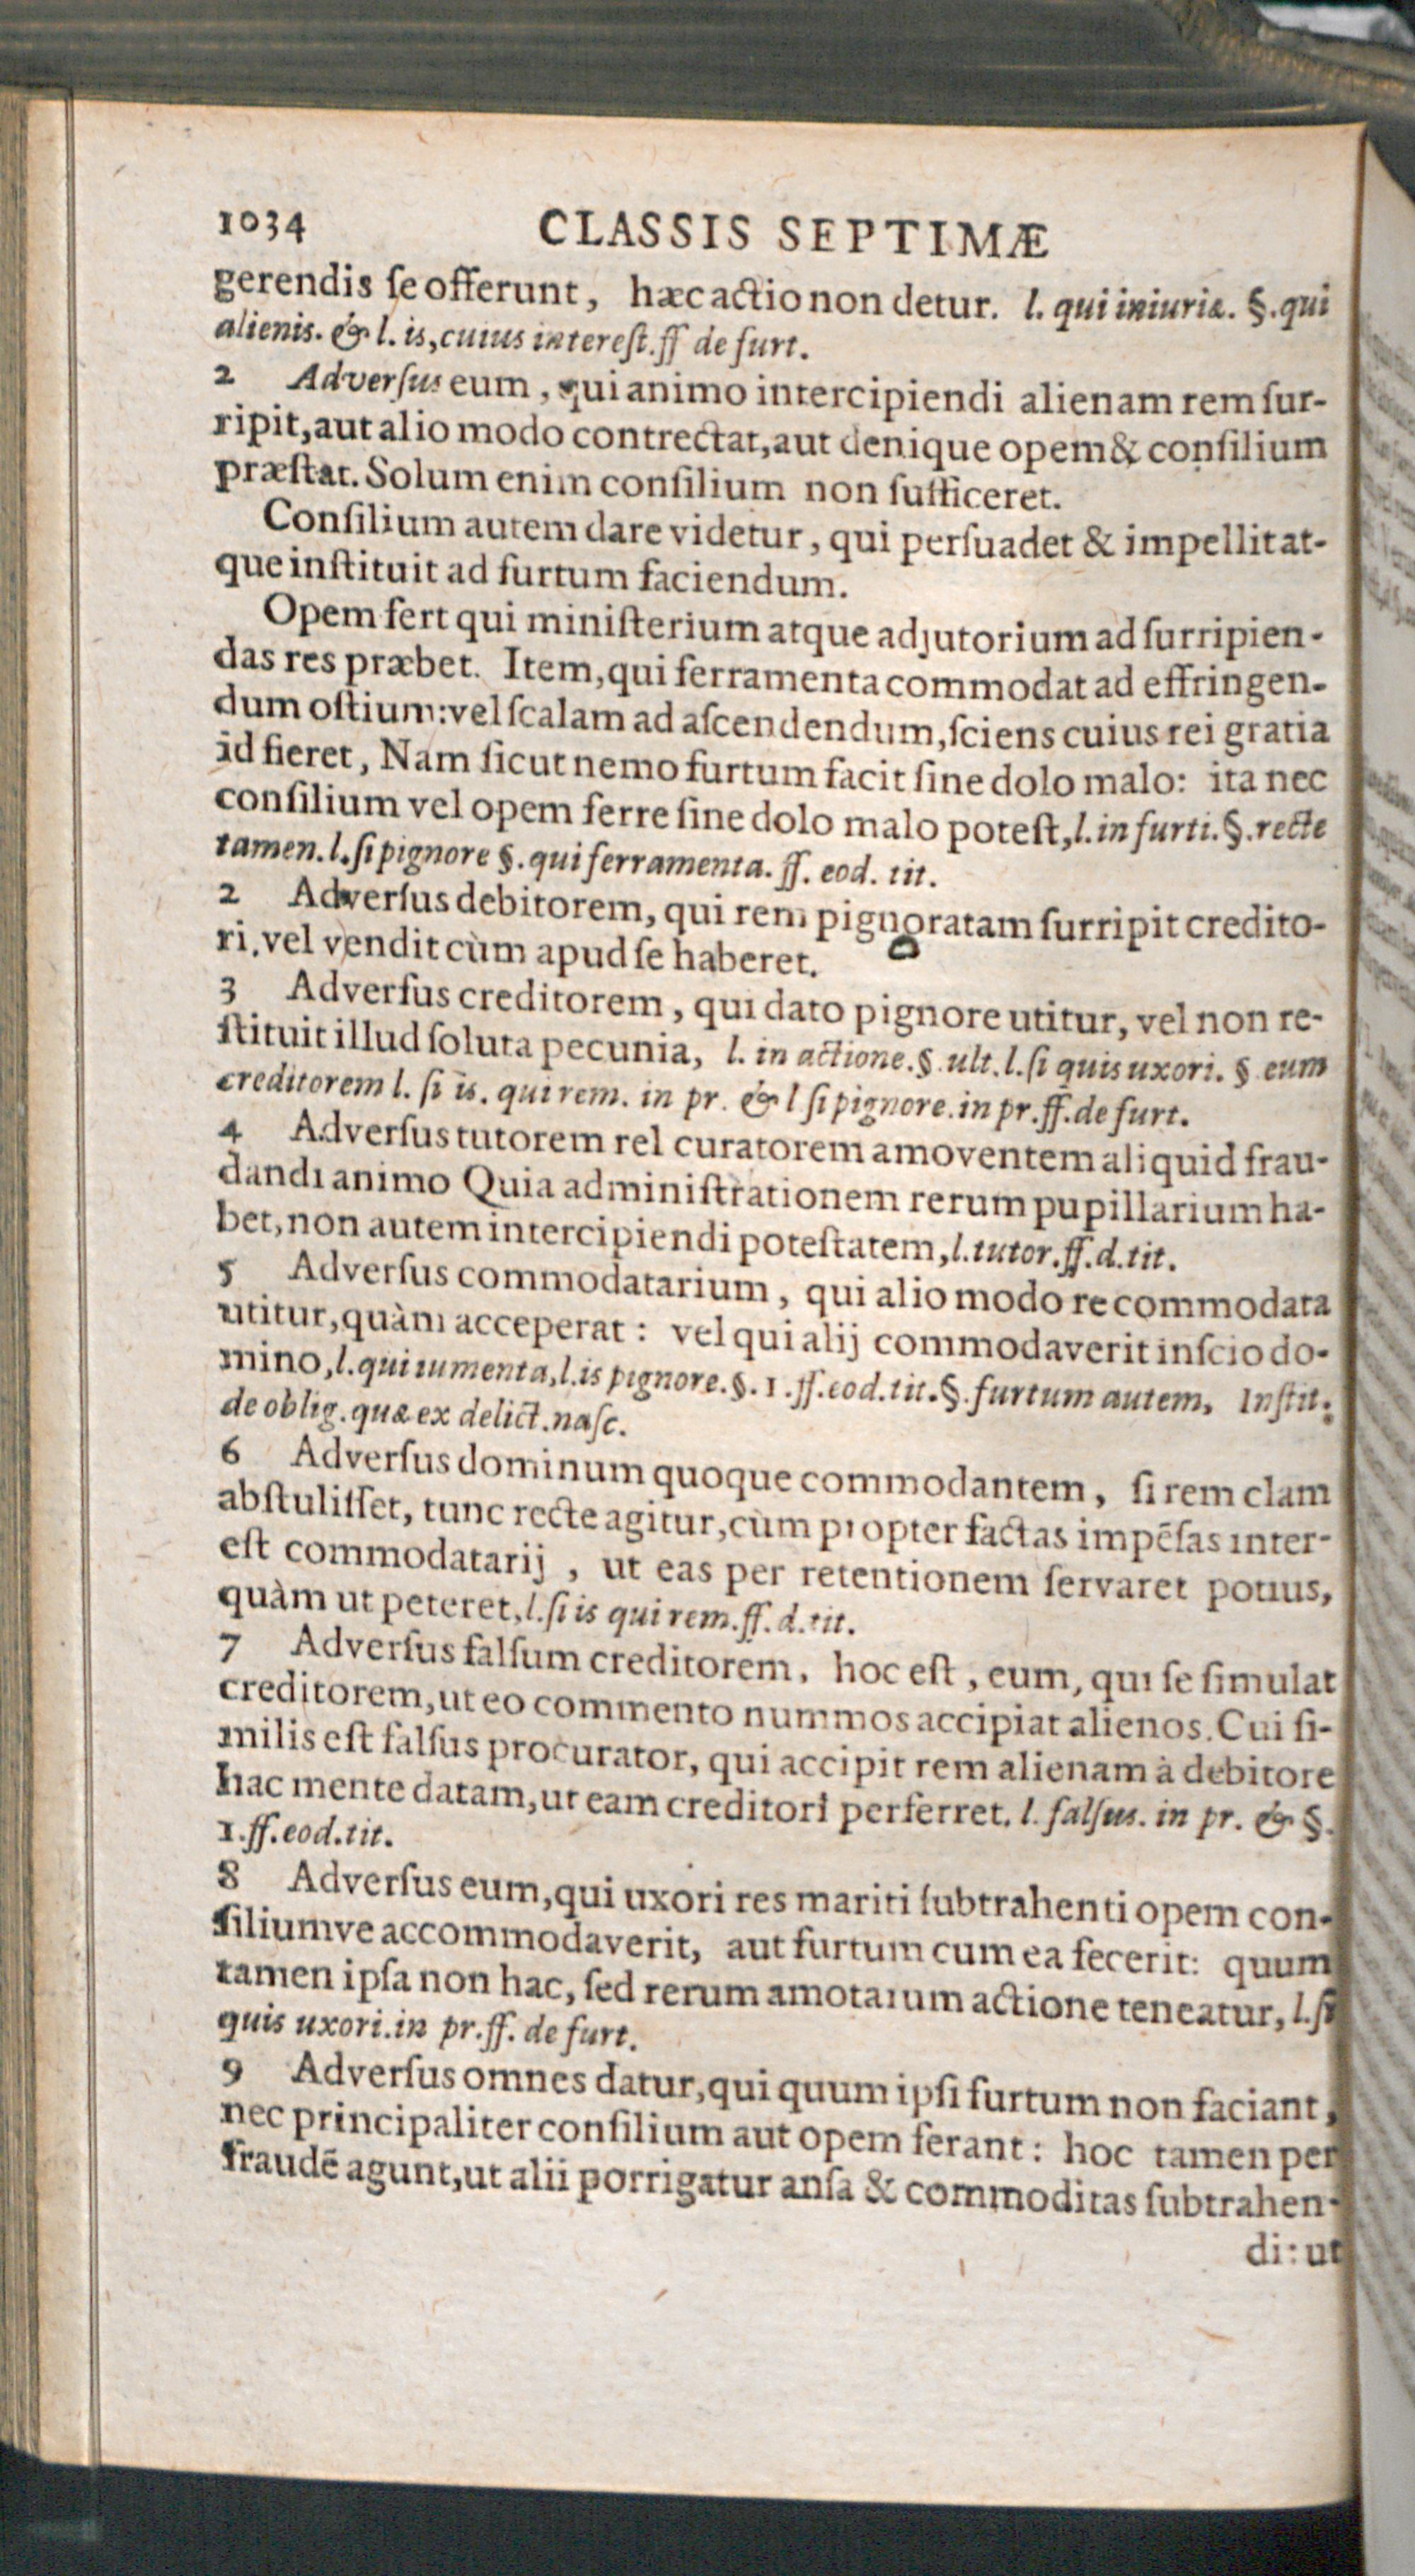 1034 CLASSIS SEPTIMÆ
gerendis ſe offerunt, hæc actio non detur. l. qui iniuriæ. §. qui
alienis. & l. is, cuius intereſt. ff de furt.
2 Adverſus eum, qui animo intercipiendi alienam rem ſur-
ripit, aut alio modo contrectat, aut denique opem & conſilium
præſtat. Solum enim conſilium non ſufficeret.
Conſilium autem dare videtur, qui perſuadet & impellit at-
que inſtituit ad furtum faciendum.
Opem fert qui miniſterium atque adjutorium ad ſurripien-
das res præbet. Item, qui ferramenta commodat ad effringen-
dum oſtium: vel ſcalam ad aſcendendum, ſciens cuius rei gratia
id fieret, Nam ſicut nemo furtum facit ſine dolo malo: ita nec
conſilium vel opem ferre ſine dolo malo poteſt, l. in furti. §. recte
tamen. l. ſi pignore §. qui ferramenta. ff. eod. tit.
2 Adverſus debitorem, qui rem pignoratam ſurripit credito-
ri, vel vendit cùm apud ſe haberet.
3 Adverſus creditorem, qui dato pignore utitur, vel non re-
ſtituit illud ſoluta pecunia, l. in actione. §. ult. l. ſi quis uxori. § eum
creditorem l. ſi is. qui rem. in pr. & l ſi pignore. in pr. ff. de furt.
4 Adverſus tutorem rel curatorem amoventem aliquid frau-
dandi animo Quia adminiſtrationem rerum pupillarium ha-
bet, non autem intercipiendi poteſtatem, l. tutor. ff. d. tit.
5 Adverſus commodatarium, qui alio modo re commodata
utitur, quàm acceperat: vel qui alij commodaverit inſcio do-
mino, l. qui iumenta, l. is pignore. §. 1. ff. eod. tit. §. furtum autem, Inſtit.
de oblig. quæ ex delict. naſc.
6 Adverſus dominum quoque commodantem, ſi rem clam
abſtuliſſet, tunc recte agitur, cùm propter factas impẽſas inter-
eſt commodatarij, ut eas per retentionem ſervaret potius,
quàm ut peteret, l. ſi is qui rem. ff. d. tit.
7 Adverſus falſum creditorem, hoc eſt, eum, qui ſe ſimulat
creditorem, ut eo commento nummos accipiat alienos. Cui ſi-
milis eſt falſus procurator, qui accipit rem alienam à debitore
hac mente datam, ut eam creditori perferret. l. falſus. in pr. & §.
1. ff. eod. tit.
8 Adverſus eum, qui uxori res mariti ſubtrahenti opem con-
ſiliumve accommodaverit, aut furtum cum ea fecerit: quum
tamen ipſa non hac, ſed rerum amotarum actione teneatur, l. ſi
quis uxori. in pr. ff. de furt.
9 Adverſus omnes datur, qui quum ipſi furtum non faciant,
nec principaliter conſilium aut opem ferant: hoc tamen per
fraudẽ agunt, ut alii porrigatur anſa & commoditas ſubtrahen-
di: ut